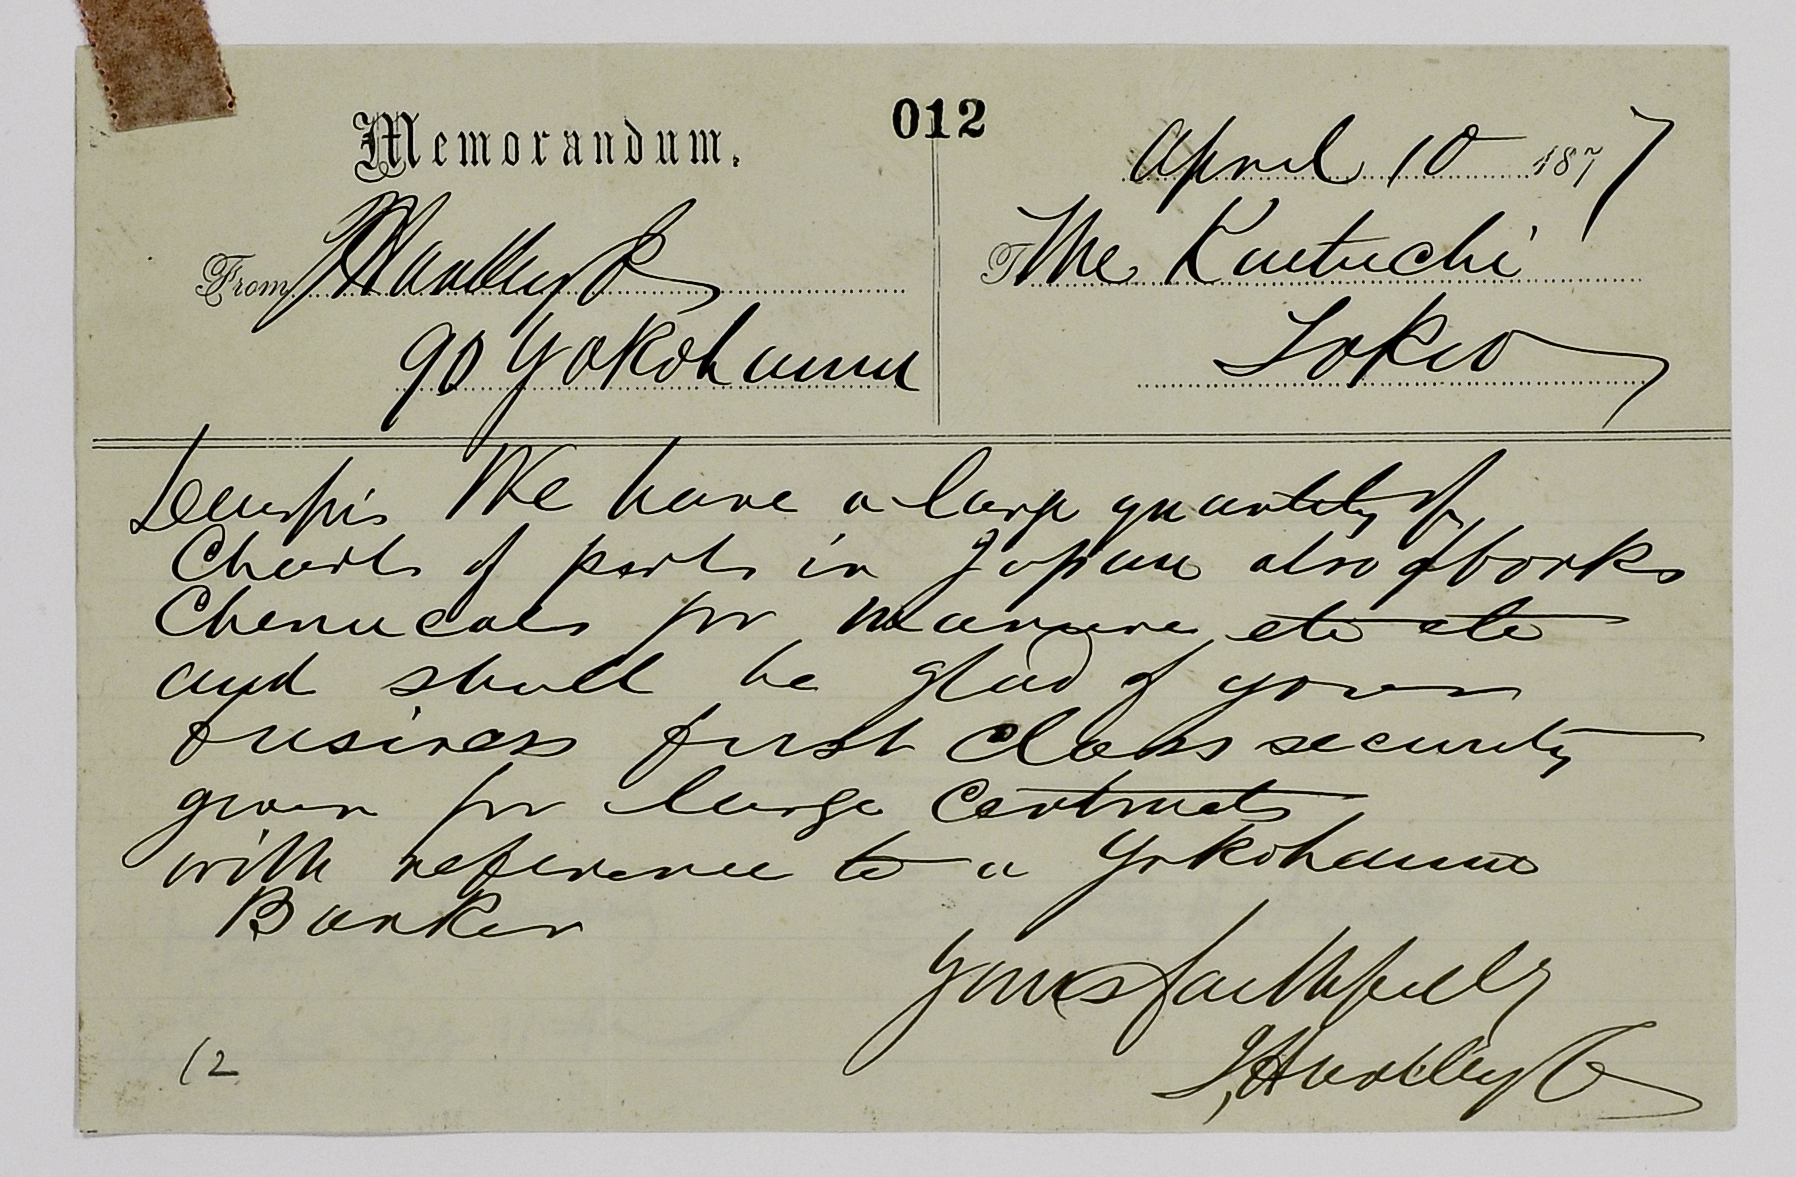 Memorandum.
012
April 10 1877
From J Hartley &
To The Kaitakuchi
90 Yokohama
Tokio
We have a large quantity of
Charts of ports in Japan also of books
Chemicals for manure etc etc
and shall be glad of your
business first class security
given for large Contracts
with reference to a Yokohama
Banker
Yours faithfully
J, Hartley & C
12